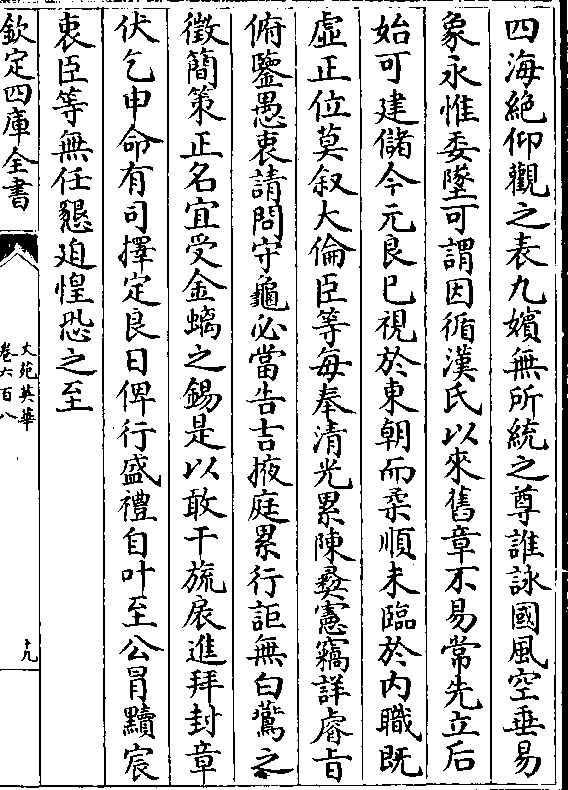 四海絶仰觀之表九嬪無所統之尊誰詠國風空垂易
象永惟委墜可謂因循漢氏以來舊章不易常先立后
始可建儲今元良已視於東朝而柔順未臨於内職既
虛正位莫叙大倫臣等每奉清光累陳彜憲竊詳睿旨
俯鑒愚衷請問守龜必當告吉掖庭累行詎無白鷰之
徵簡策正名宜受金螭之錫是以敢干旒扆進拜封章
伏乞申命有司擇定良日俾行盛禮自叶至公冒黷宸
衷臣等無任懇迫惶恐之至
欽定四庫全書
文苑英華
卷六百八
十九